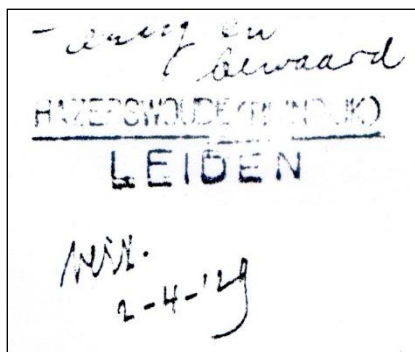 - enig en
bewaard
HAZERSWOUDE (RIJNDIJK)
LEIDEN
2-4-'29